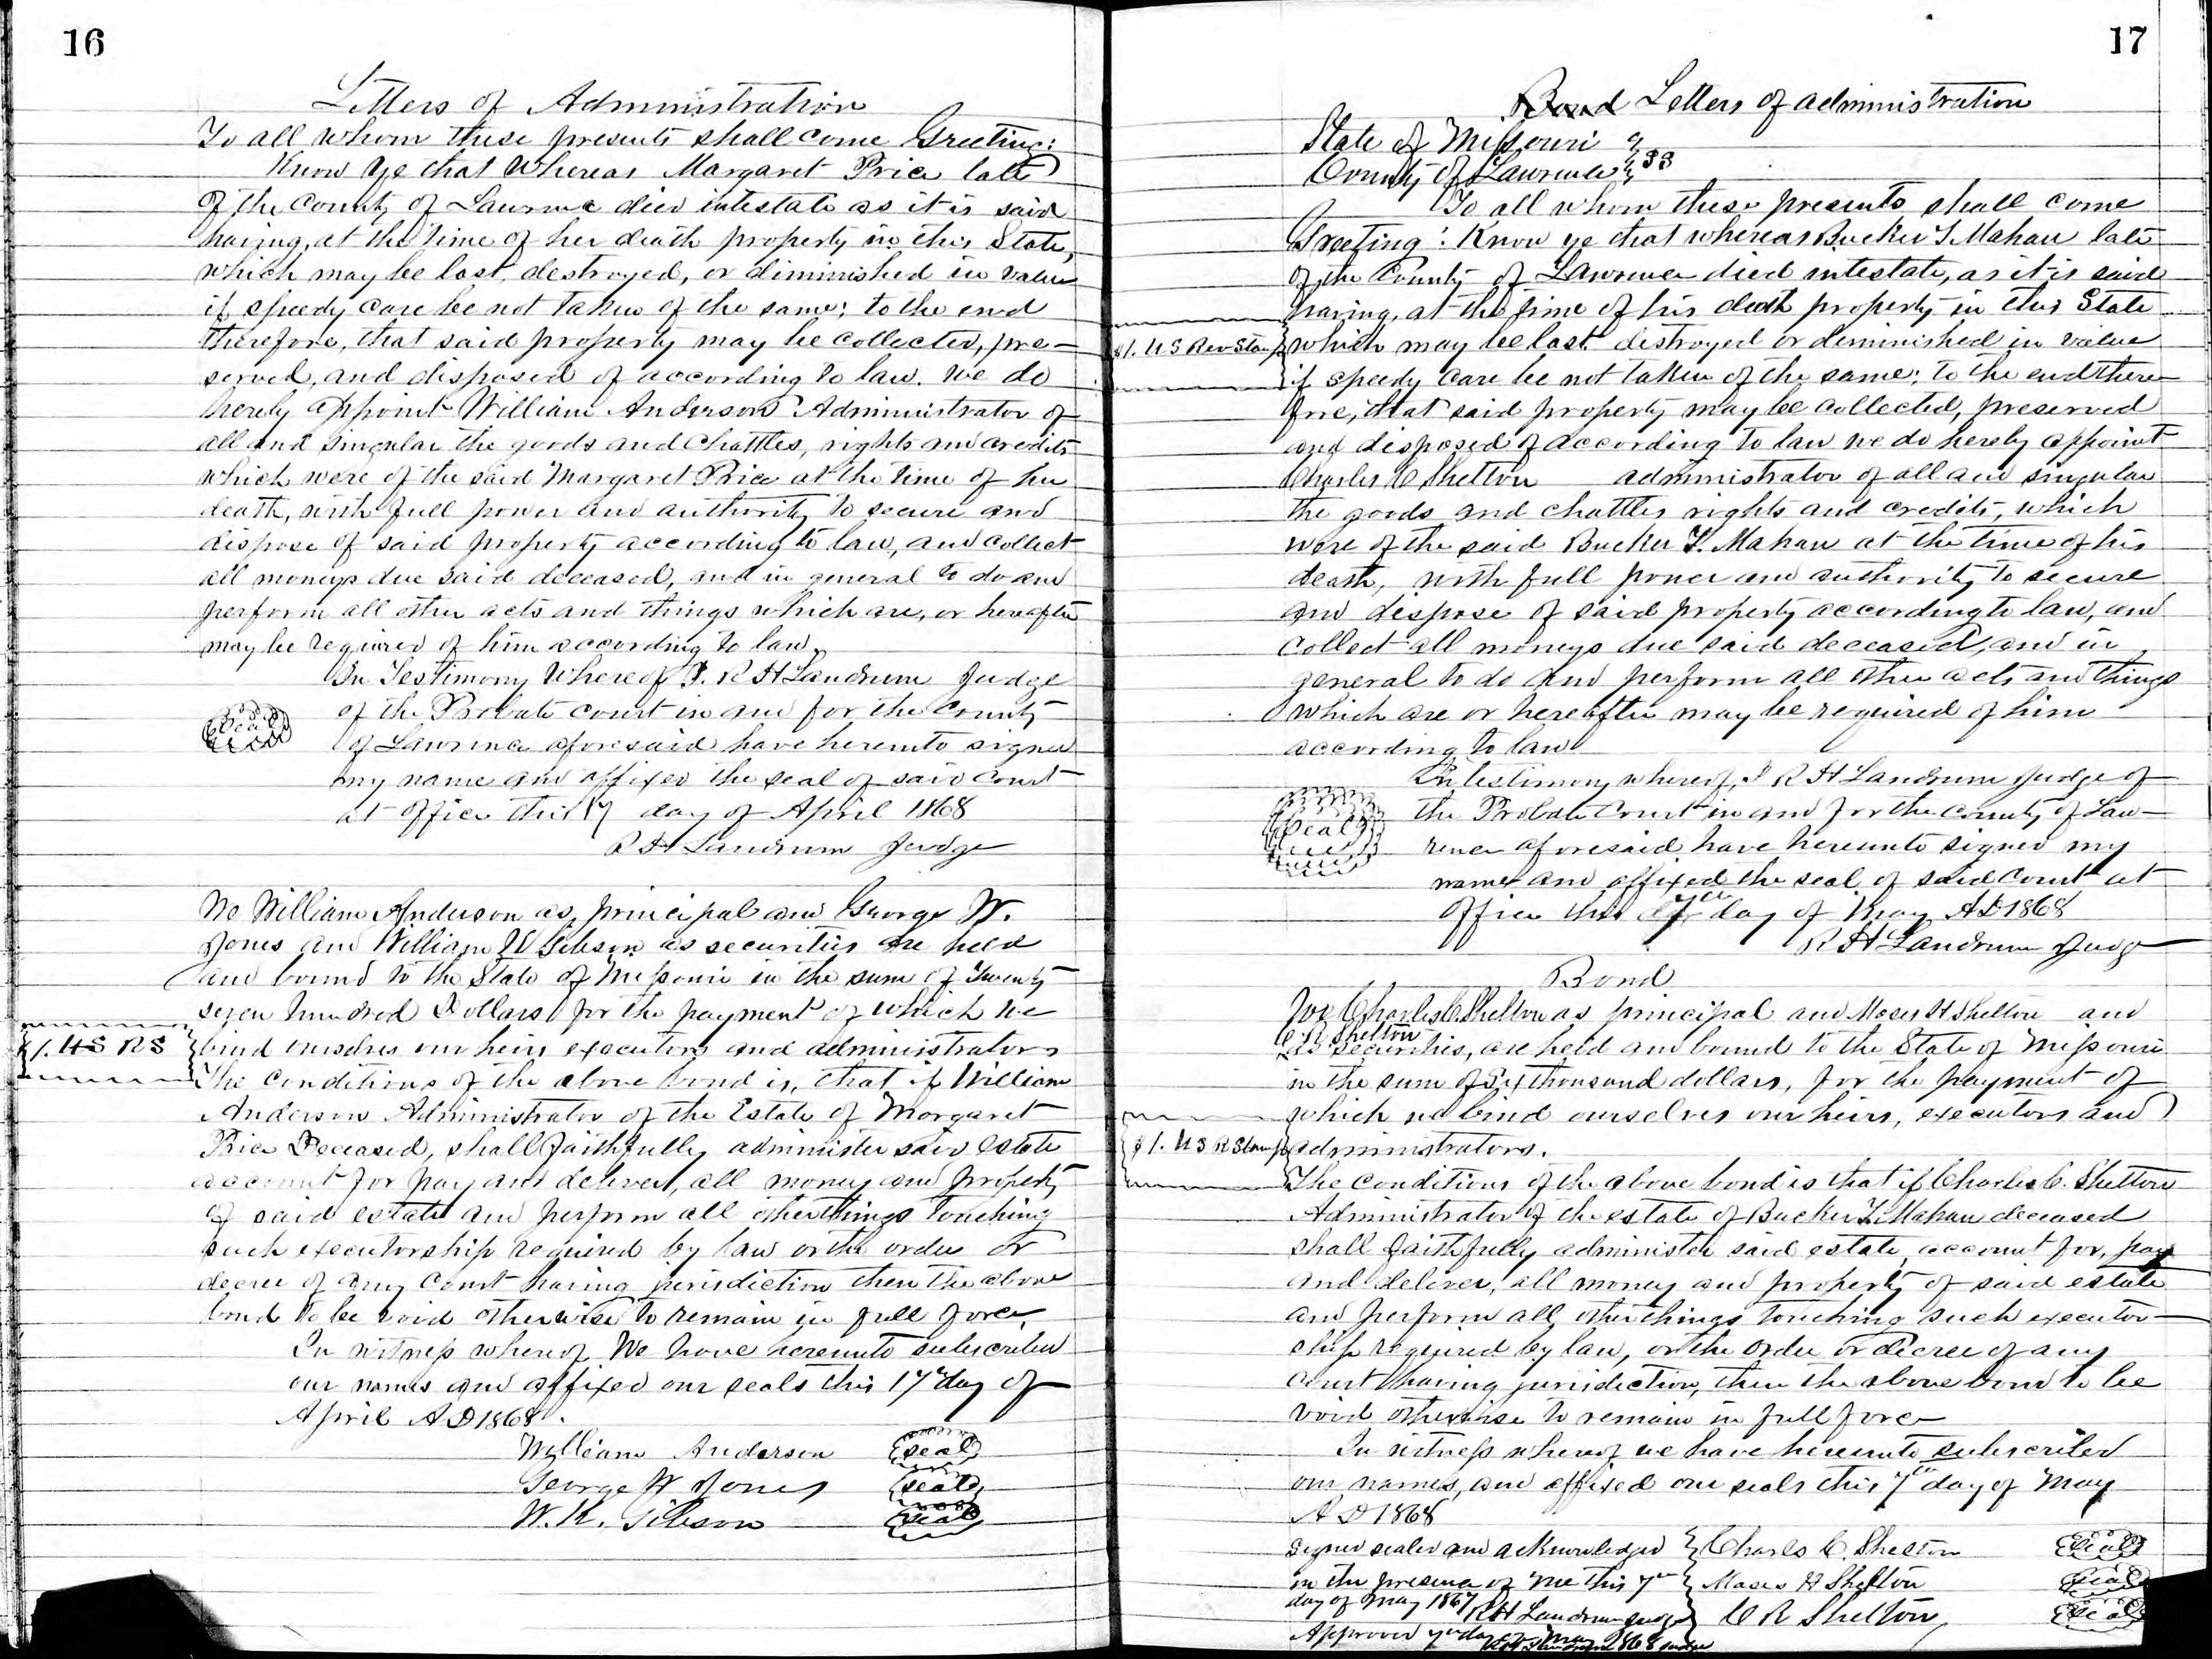 16
Letters of Administration
To all whom these presents shall come Greeting:
Know Ye that Whereas Margaret Price late
of the County of Lawrence died intestate as it is said
having, at the time of her death property in this State,
which may be lost, destroyed, or diminished in value
if speedy care be not taken of the same; to the end
therefore, that said property may be collected, pre-
served, and disposed of according to law. We do
hereby appoint William Anderson Administrator of
all and singular the goods and chattles, rights and credits
which were of the said Margaret Price at the time of her
death, with full power and authority to secure and
dispose of said property according to law, and collect
all moneys due said deceased, and in general to do and
perform all other acts and things which are, or hereafter
may be required of him according to law.
In Testimony Whereof I. R H Landrum Judge
of the Probate court in and for the County
Seal
of Lawrence aforesaid have hereunto signed
my name and affixed the seal of said court
at office this 17 day of April 1868
R H Landrum Judge
We William Anderson as principal and George W.
Jones and William K Gibson as securities are held
and bound to the State of Missouri in the sum of Twenty
seven hundred Dollars for the payment of which we
$1. US RS
bind ourselves our heirs executors and administrators
The conditions of the above bond is, that if William
Anderson Administrator of the Estate of Margaret
Price Deceased, shall faithfully administer said estate
account for pay and deliver, all money and property
of said estate and perform all other things touching
such executorship required by law or the order or
decree of any court having jurisdiction then the above
bond to be void otherwise to remain in full force.
In witness whereof We have hereunto subscribed
our names and affixed our seals this 17th day of
April A D 1868.
William Anderson seal
George W Jones seal
W. K. Gibson seal
17
Bond Letters of administration
State of Missouri
County of Lawrence SS
To all whom these presents shall come
Greeting: Know ye that whereas Bucker T. Mahan late
of the County of Lawrence died intestate, as it is said
having, at the time of his death property in this State
$1. U S Rev Stamp
which may be lost destroyed or diminished in value
if speedy care be not taken of the same; to the end there-
fore, that said property may be collected, preserved
and disposed of according to law we do hereby appoint
Charles C Shelton administrator of all and singular
the goods and chattles rights and credits, which
were of the said Bucker T. Mahan at the time of his
death, with full power and authority to secure
and dispose of said property according to law, and
collect all moneys due said deceased, and in
general to do and perform all other acts and things
which are or hereafter may be required of him
according to law
In testimony whereof, I R H Landrum Judge of
the Probate Court in and for the county of Law-
Seal
rence aforesaid have hereunto signed my
name and affixed the seal of said court at
office this 7th day of May AD 1868
R H Landrum Judge
Bond
We Charles C. Shelton as principal and Moses H Shelton and
C. R Shelton
as securities, are held and bound to the State of Missouri
in the sum of Six thousand dollars, for the payment of
which we bind ourselves our heirs, executors and
$1. U S R Stamp
administrators.
The conditions of the above bond is that if Charles C. Shelton
Administrator of the estate of Bucker T. Mahan deceased
shall faithfully administer said estate, account for, pay
and deliver, all money and property of said estate
and perform all other things touching such executor-
ship required by law, or the order or decree of any
court having jurisdiction, then the above bond to be
void otherwise to remain in full force
In witness whereof we have hereunto subscribed
our names, and affixed our seals this 7th day of May
A D 1868
Signed sealed and acknowledged
in the presence of me this 7th
day of May 1867
R H Landrum Judge
Approved 7th day of May 1868
R H Landrum Judge
Charls C. Shelton Seal
Moses H Shelton Seal
C R Shelton Seal